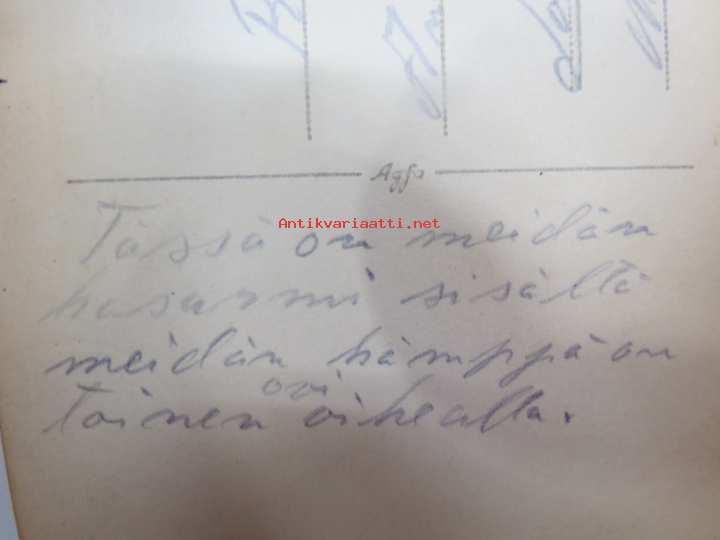 Agfa
Antikvariaatti.net
Tässä on meidän
kasarmi sisältä
meidän kämppä on
ovi
toinen oikealla.